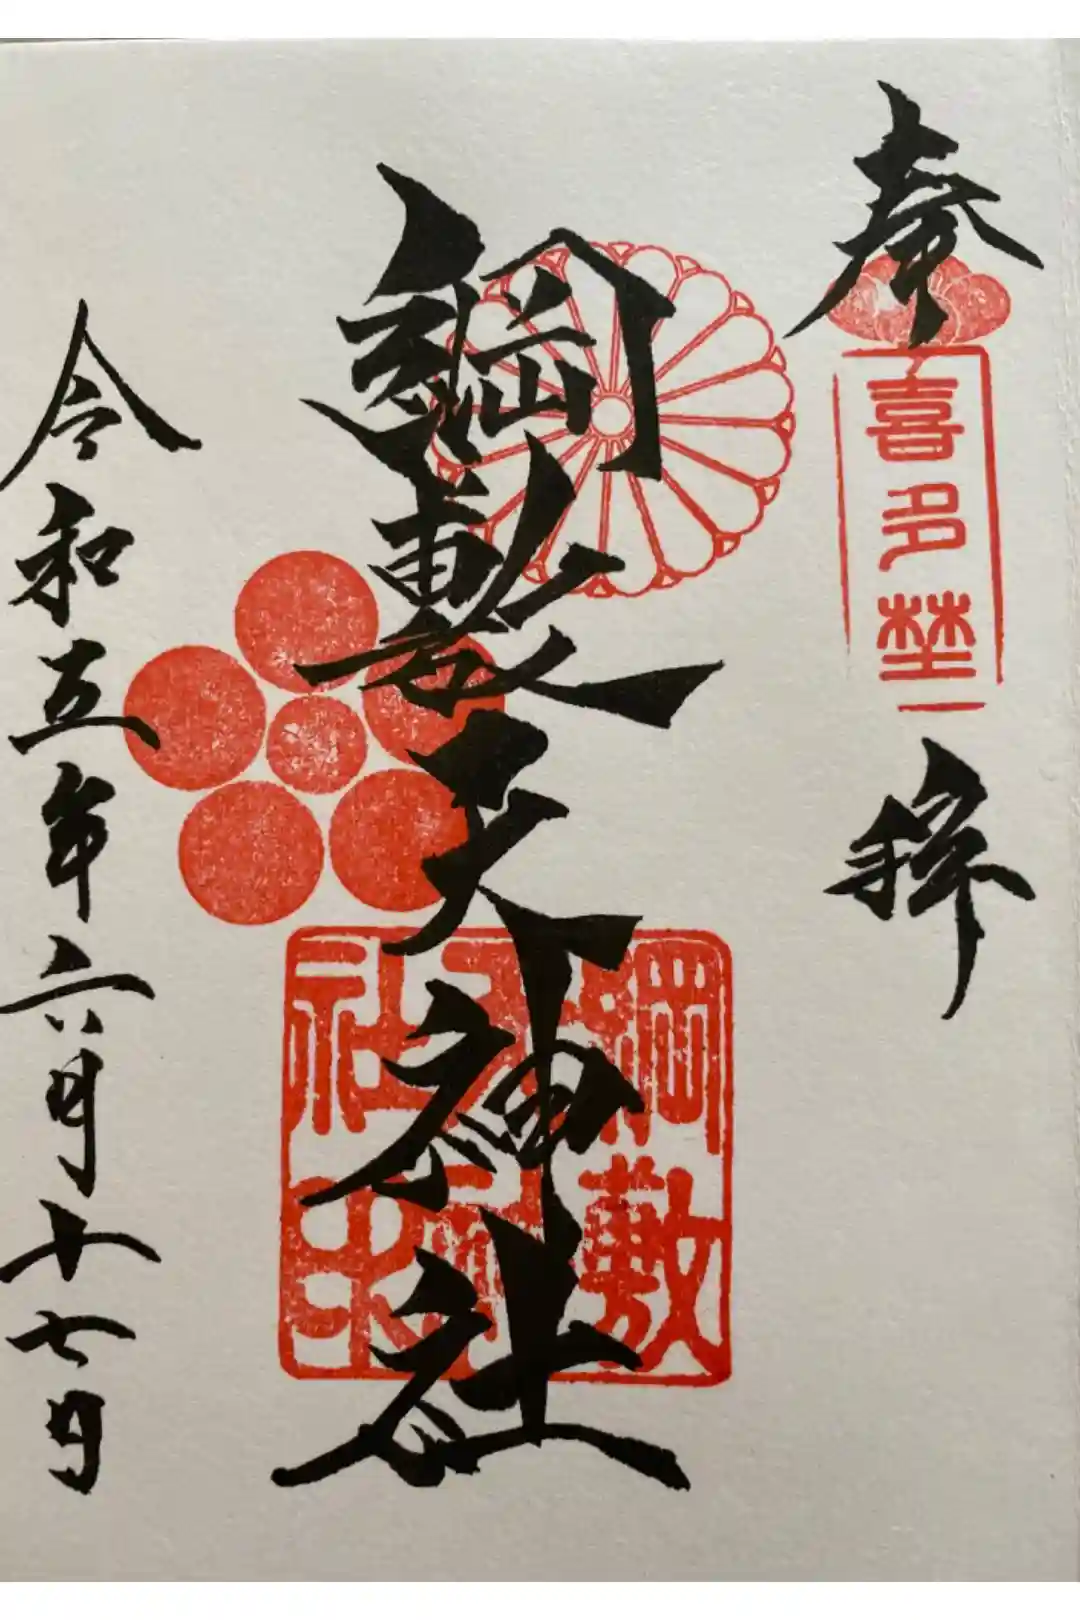 奉
喜多埜
拝
綱敷天神社
綱敷
天神
社印
令和五年六月十七日